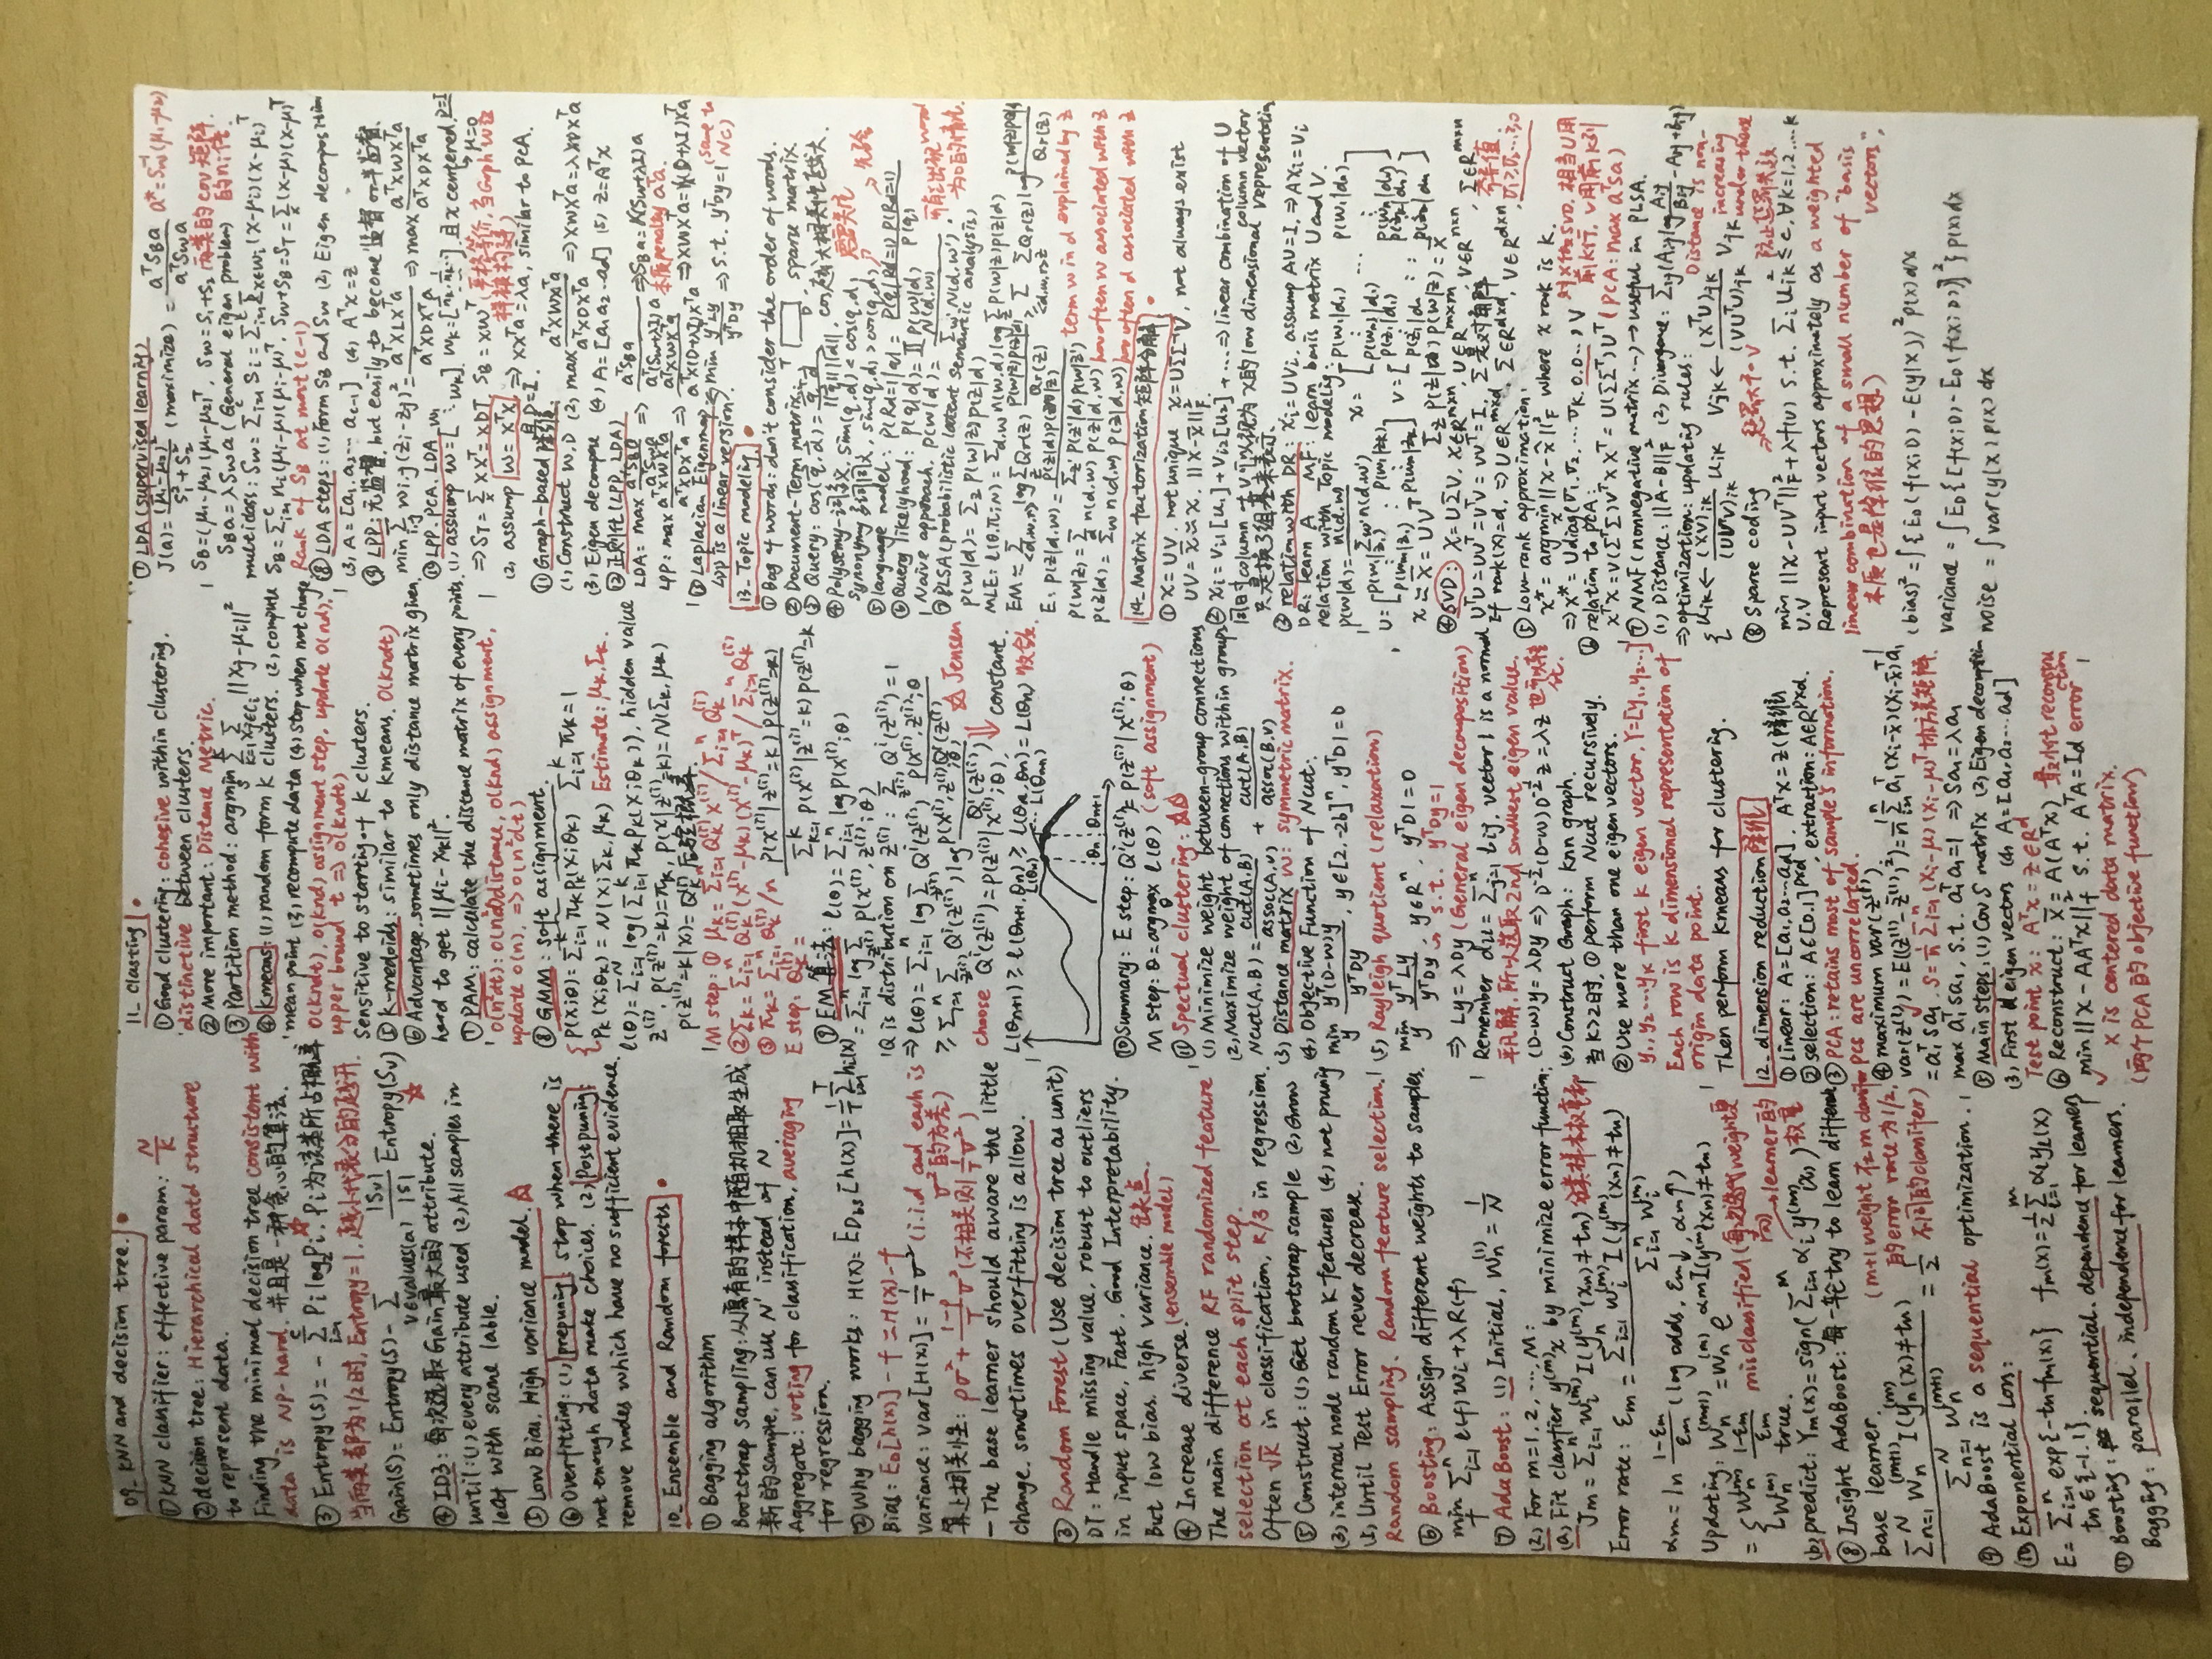 09_ KNN and decision tree.
① KNN classifier: effective param: N/K
② decision tree: Hierarchical datd structure
to represent data.
Finding the minimal decision tree consistent with
data is NP-hard. 并且是一种贪心的算法.
③ Entropy(S) = - Σ_{i=1}^{c} Pi log₂Pi. Pi为该类所占概率
当两类都为1/2时, Entropy=1. 越小代表分的越开.
Gain(S) = Entropy(S) - Σ_{v∈values(a)} |Sv|/|S| Entropy(Sv)
④ ID3: 每次选取Gain最大的attribute.
until: (1) every attribute used (2) All samples in
leaf with same lable.
⑤ Low Bias. High variance model.
⑥ Overfitting: (1) prepuning: stop when there is
not enough data make choices. (2) Postpuning:
remove nodes which have no sufficient evidence.
10_ Ensemble and Random forests
① Bagging algorithm
Bootstrap sampling: 从原有的样本中随机抽取生成
新的sample, can use N' instead of N.
Aggregate: voting for classification, averaging
for regression.
② Why bagging works: H(x) = E_{Dbs}[h(x)] = 1/T Σ_{i=1}^{T} hi(x)
Bias: E_D[h(x)] - f = H(x) - f
Variance: var[H(x)] = 1/T σ² (i.i.d and each is
σ²的方差)
算上相关性: ρσ² + (1-ρ)/T σ² (不相关则 1/T σ²)
- The base learner should aware the little
change. sometimes overfitting is allow.
③ Random Forest (Use decision tree as unit)
DT: Handle missing value, robust to outliers
in input space, Fast, Good Interpretability.
But low bias, high variance. 缺点.
④ Increase diverse. (ensemble model)
The main difference RF randomized feature
selection at each split step.
Often √K in classification, K/3 in regression.
⑤ Construct: (1) Get bootstrap sample (2) Grow
(3) internal node random K features (4) not pruning
(5) Until Test Error never decrease.
Random sampling. Random feature selection.
⑥ Boosting: Assign different weights to samples.
min_f Σ_{i=1}^{n} ℓ(f) wi + λR(f)
⑦ AdaBoost: (1) Initial, Wn^{(1)} = 1/N
(2) For m=1, 2, ..., M:
(a) Fit classfier y^{(m)}x by minimize error function:
Jm = Σ_{i=1}^{n} wi^{(m)} I(y^{(m)}(xn) ≠ tn) 分类样本权重和
Error rate: εm = Σ_{i=1}^{n} wi^{(m)} I(y^{(m)}(xn) ≠ tn) / Σ_{i=1}^{n} wi^{(m)}
αm = ln (1-εm)/εm (log odds. εm↓, αm↑)
Updating: Wn^{(m+1)} = Wn^{(m)} e^{αm I(y^{(m)}(xn) ≠ tn)}
= { Wn^{(m)} (1-εm)/εm misclassified (每次迭代weight更
Wn^{(m)} true. →learner的
(b) predict: Ym(x) = sign(Σ_{i=1}^{m} αi y^{(m)}(x)) 权重
⑧ Insight AdaBoost: 每一轮try to learn different
base learner.
(m+1 weight 在m classifier
Σ_{n=1}^{N} Wn^{(m+1)} I(yn^{(m)}(x) ≠ tn) / Σ_{n=1}^{N} Wn^{(m+1)} = 1/2 的error rate为1/2,
不同的classifer)
⑨ AdaBoost is a sequential optimization.
⑩ Exponential Loss:
E = Σ_{i=1}^{n} exp{-tn fm(x)} fm(x) = 1/2 Σ_{l=1}^{m} αl yl(x)
tn ∈ {-1, 1}.
⑪ Boosting: sequential. dependence for learners
Bagging: parallel. independence for learners.
11_ Clasting
① Good clustering: cohesive within clustering.
distinctive between clusters.
② More important: Distance Metric.
③ Partition method: argmin_S Σ_{k=1}^{K} Σ_{xj∈Ci} ||xj - μi||²
④ Kmeans: (1) random form K clusters. (2) compute
mean point (3) recompute data (4) stop when not change
O(kndt), O(knd) assignment step, update O(nd),
upper bound t => O(kndt)
Sensitive to starting of K clusters.
⑤ K-medoids: similar to kmeans. O(kndt)
⑥ Advantage. sometimes only distance matrix given.
hard to get ||μi - xk||².
⑦ PAM: calculate the distance matrix of every points.
O(n²dt): O(n²d) distance, O(knd) assignment,
update O(n), => O(n²dt)
⑧ GMM: soft assignment.
P(x;θ) = Σ_{i=1}^{k} πk Pk(x;θk) Σ_{i=1}^{k} πk = 1
Pk(x;θk) = N(x; Σk, μk) Estimate: μk, Σk.
ℓ(θ) = Σ_{i=1}^{N} log(Σ_{i=1}^{k} πk Pk(x;θk)), hidden value
z^{(i)}. P(z^{(i)}=k) = πk, P(x|z^{(i)}=k) = N(Σk, μk)
P(z^{(i)}=k|x) = Qk^{(i)} 后验概率.
M step: ① μk = Σ_{i=1}^{n} Qk^{(i)} x^{(i)} / Σ_{i=1}^{n} Qk^{(i)}
② Σk = Σ_{i=1}^{n} Qk^{(i)} (x^{(i)} - μk)(x^{(i)} - μk)^T / Σ_{i=1}^{n} Qk^{(i)}
③ πk = Σ_{i=1}^{n} Qk^{(i)} / n
E step: Qk^{(i)} = P(x^{(i)}|z^{(i)}=k) P(z^{(i)}=k) / Σ_{k=1}^{K} P(x^{(i)}|z^{(i)}=k) P(z^{(i)}=k
⑨ EM算法: ℓ(θ) = Σ_{i=1}^{n} log P(x^{(i)};θ)
= Σ_{i=1}^{n} log Σ_{z^{(i)}} P(x^{(i)}, z^{(i)};θ)
Q is distribution on z^{(i)}: Σ_{z^{(i)}} Q^i(z^{(i)}) = 1
=> ℓ(θ) = Σ_{i=1}^{n} log Σ_{z^{(i)}} Q^i(z^{(i)}) P(x^{(i)}, z^{(i)};θ / Q^i(z^{(i)})
≥ Σ_{i=1}^{n} Σ_{z^{(i)}} Q^i(z^{(i)}) log P(x^{(i)}, z^{(i)};θ) / Q^i(z^{(i)}) Jensen
choose Q^i(z^{(i)}) = P(z^{(i)}|x^{(i)};θ). constant.
L(θn+1) ≥ ℓ(θn+1, θn) ≥ ℓ(θn, θn) = L(θn) 收敛.
L(θn) L(θn+1)
θn θn+1
⑩ Summary: E step: Q^i(z^{(i)}) = P(z^{(i)}|x^{(i)};θ)
M step: θ = argmax_θ ℓ(θ) (soft assignment)
⑪ Spectual clustering:
(1) Minimize weight between-group connections
(2) Maximize weight of connections within groups
Ncut(A,B) = cut(A,B)/assoc(A,V) + cut(A,B)/assoc(B,V)
(3) Distance matrix W: symmetric matrix.
(4) Objective Function of Ncut:
min_y y^T(D-W)y / y^TDy, y∈[2,-2b]^n, y^TD1=0
(5) Rayleigh quotient (relaxation)
min_y y^TLy / y^TDy, y∈R^n, y^TD1=0
s.t. y^TDy=1
=> Ly=λDy (General eigen decomposition)
Remember dii = Σ_{j=1}^{n} Lij, vector 1 is a normal
平凡解, 所以选取2nd smallest eigen value.
(D-W)y=λDy => D^{-1/2}(D-W)D^{-1/2}z=λz 也可以转
(6) Construct Graph: Knn graph.
当K>2时, ① perform Ncut recursively.
② Use more than one eigen vectors.
y1, y2...yK first K eigen vector, Y=[y1,y2...]
Each row is K dimensional representation of
origin data point.
Then perform Kmeans for clustering.
12_ dimension reduction降维
① linear: A=[a1,a2...ad], A^Tx=z (降维)
② selection: A∈[0,1]^{p×d}, extraction: A∈R^{p×d}.
③ PCA: retains most of sample's information.
PCs are uncorrelated.
④ maximum var(z^{(1)}).
var(z^{(1)}) = E((z^{(1)} - z̄^{(1)})²) = 1/n Σ_{i=1}^{n} a1^T(xi-x̄)(xi-x̄)^Ta1
= a1^TSa1. S = 1/n Σ_{i=1}^{n} (xi-μ)(xi-μ)^T 协方差矩阵.
max a1^TSa1, s.t. a1^Ta1=1 => Sa1=λa1
⑤ Main steps: (1) Cov S matrix (2) Eigen decomption
(3) First d eigen vectors (4) A=[a1,a2...ad]
Test point x: A^Tx=z∈R^d
⑥ Reconstruct: x̄=A(A^Tx) 最小化reconstruction
min||x-AA^Tx||²_F s.t. A^TA=Id error
x is centered data matrix.
(两个PCA的objective function)
⑦ LDA (supervised learning)
J(a) = (μ̄1-μ̄2)² / S1²+S2² (maximize) = a^TSBa / a^TSWa a*=SW^{-1}(μ1-μ2)
SB=(μ1-μ2)(μ1-μ2)^T, SW=S1+S2 两类的cov矩阵
的ni倍.
SBa=λSWa (General eigen problem)
multiclass: SW = Σ_{i=1}^{c} Si = Σ_{i=1}^{c} Σ_{x∈wi} (x-μi)(x-μi)^T
SB = Σ_{i=1}^{c} ni(μi-μ)(μi-μ)^T, SW+SB=ST=Σ_x(x-μ)(x-μ)^T
Rank of SB at most (c-1)
⑧ LDA steps: (1) Form SB and SW (2) Eigen decomposition
(3) A=[a1.a2...ac-1] (4) A^Tx=z
⑨ LPP: 无监督, but easily to become监督or半监督.
min Σ_{i,j} wi,j(zi-zj)² = a^TXLX^Ta / a^TXDX^Ta => max a^TXWX^Ta / a^TXDX^Ta
⑩ LPP, PCA, LDA
(1) assump W=[W1 ⋱ WK], WK=[1/nk...1/nk...], 且X centered, D=I
μ=0
=> ST=Σ_x XX^T=XDX^T, SB=XWX^T (严格等价, 当Graph W这
样被构造)
(2) assump W=X^TX, => XX^Ta=λa, similar to PCA.
且D=I.
⑪ Graph-based降维:
(1) Construct W, D (2) max a^TXWX^Ta / a^TXDX^Ta => XWX^Ta=λXDX^Ta
(3) Eigen decompose (4) A=[a1a2...ad] (5) z=A^Tx
⑫ 正则化(LPP, LDA)
LDA: max a^TSBa / a^TSWa => a^TSBa / a^T(SW+λI)a => SBa=λ(SW+λI)a
本质penalty a^Ta.
LPP: max a^TXWX^Ta / a^TXDX^Ta => a^TXWX^Ta / a^TX(D+λI)X^Ta => XWX^Ta=λX(D+λI)X^Ta
⑬ Laplacian Eigenmap: min y^TLy / y^TDy => s.t. y^TDy=1 (same to
LPP is a linear version. NC)
13_ Topic modeling
① Bag of words: don't consider the order of words.
② Document-Term matrix: T D, sparse matrix
③ Query: cos(q,d) = q·d / ||q|| ||d||, cos越大相关性越大.
④ Polysemy-一词多义, sim(q,d)<cos(q,d).
Synonymy 多词同义, sim(q,d)>cos(q,d)
⑤ language model: P(Rd=1|q) = P(q|Rd=1)P(Rd=1) / P(q) 先验
⑥ Query likelyhood: P(q|d)=Π P(w|d)
Naive approach. P(w|d) = N(d,w) / Σw' N(d,w'). 可能出现word
为0的情况.
⑦ PLSA (probabilistic latent semantic analysis)
P(w|d) = Σz P(w|z)P(z|d)
MLE: ℓ(θ,π;N) = Σ_{d,w} n(w,d) log Σz P(w|z)P(z|d)
E: P(z|d,w) = P(z|d)P(w|z) / Σz' P(z'|d)P(w|z') term w in d explained by z
P(w|z) = Σ_d n(d,w) P(z|d,w) how often w associated with z
P(z|d) = Σw n(d,w) P(z|d,w) how often d associated with z
14_ Matrix factorization矩阵分解
① X=UV, not unique X=UΣΣ^{-1}V, not always exist
UV=X̄≈X. ||X-X̄||²_F
② Xi=Vi1[u1]+Vi2[u2]+... => linear combination of U
column vector
同时column of V可以视为X的low dimensional representation
只是换了组基来表示.
③ relation with DR: Xi=UVi, assump AU=I, => AXi=Vi
DR: learn A MF: learn basis matrix U and V.
relation with Topic modeling:
P(w|d) = n(d,w) / Σw' n(d,w') X = [P(w1|d1) ... P(w1|dn) P(wm|d1) P(wm|dn)]
U=[P(w1|z1) ... P(w1|zk) P(wm|z1) ... P(wm|zk)] V=[P(z1|d1) P(zk|d1) P(z1|dn ... P(zk|dn]
X≈X̄=UV^T Σz P(z|d)P(w|z)=X̄
④ SVD: X=UΣV, X∈R^{m×n}, U∈R^{m×m}, V∈R^{n×n}, Σ∈R^{m×n}
U^TU=UU^T=V^TV=VV^T=I, Σ是对角阵 奇异值
If rank(X)=d, => U∈R^{m×d}, Σ∈R^{d×d}, V∈R^{d×n}, σ1≥σ2...≥0
⑤ Low-rank approximation:
X*=argmin_{x̂}||X-X̂||²_F where X rank is K.
=> X*=Udiag(σ1,σ2,...σK,0,0...)V 对X做SVD, 相当U用
前K行, V用前K列
⑥ relation to PCA:
X^TX=V(Σ^TΣ)V^T XX^T=U(ΣΣ^T)U^T (PCA: max a^TSa)
⑦ NMF (nonnegative matrix...) → useful in PLSA.
(1) Distance: ||A-B||²_F (2) Divergence: Σij(Aij log Aij/Bij - Aij + Bij)
=> optimization: updating rules: Distance is non-
{ uik ← (XV)ik / (UV^TV)ik uik Vjk ← (X^TU)jk / (VU^TU)jk Vjk increasing
under these
⑧ Sparse coding
min_{U,V} ||X-UV^T||²_F+λf(V) s.t. Σi Uik ≤ c, ∀k=1,2,...k
Represent input vectors approximately as a weighted
linear combination of a small number of "basis
vectors",
本质也是降维的思想)
(bias)² = ∫{E_D(f(x;D) - E(y|x)}² p(x)dx
variance = ∫E_D{[f(x;D) - E_D(f(x;D)]²} p(x)dx
noise = ∫var(y|x)p(x)dx